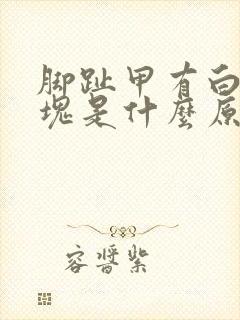 脚趾甲有白
塊是什麼原
容醬紫